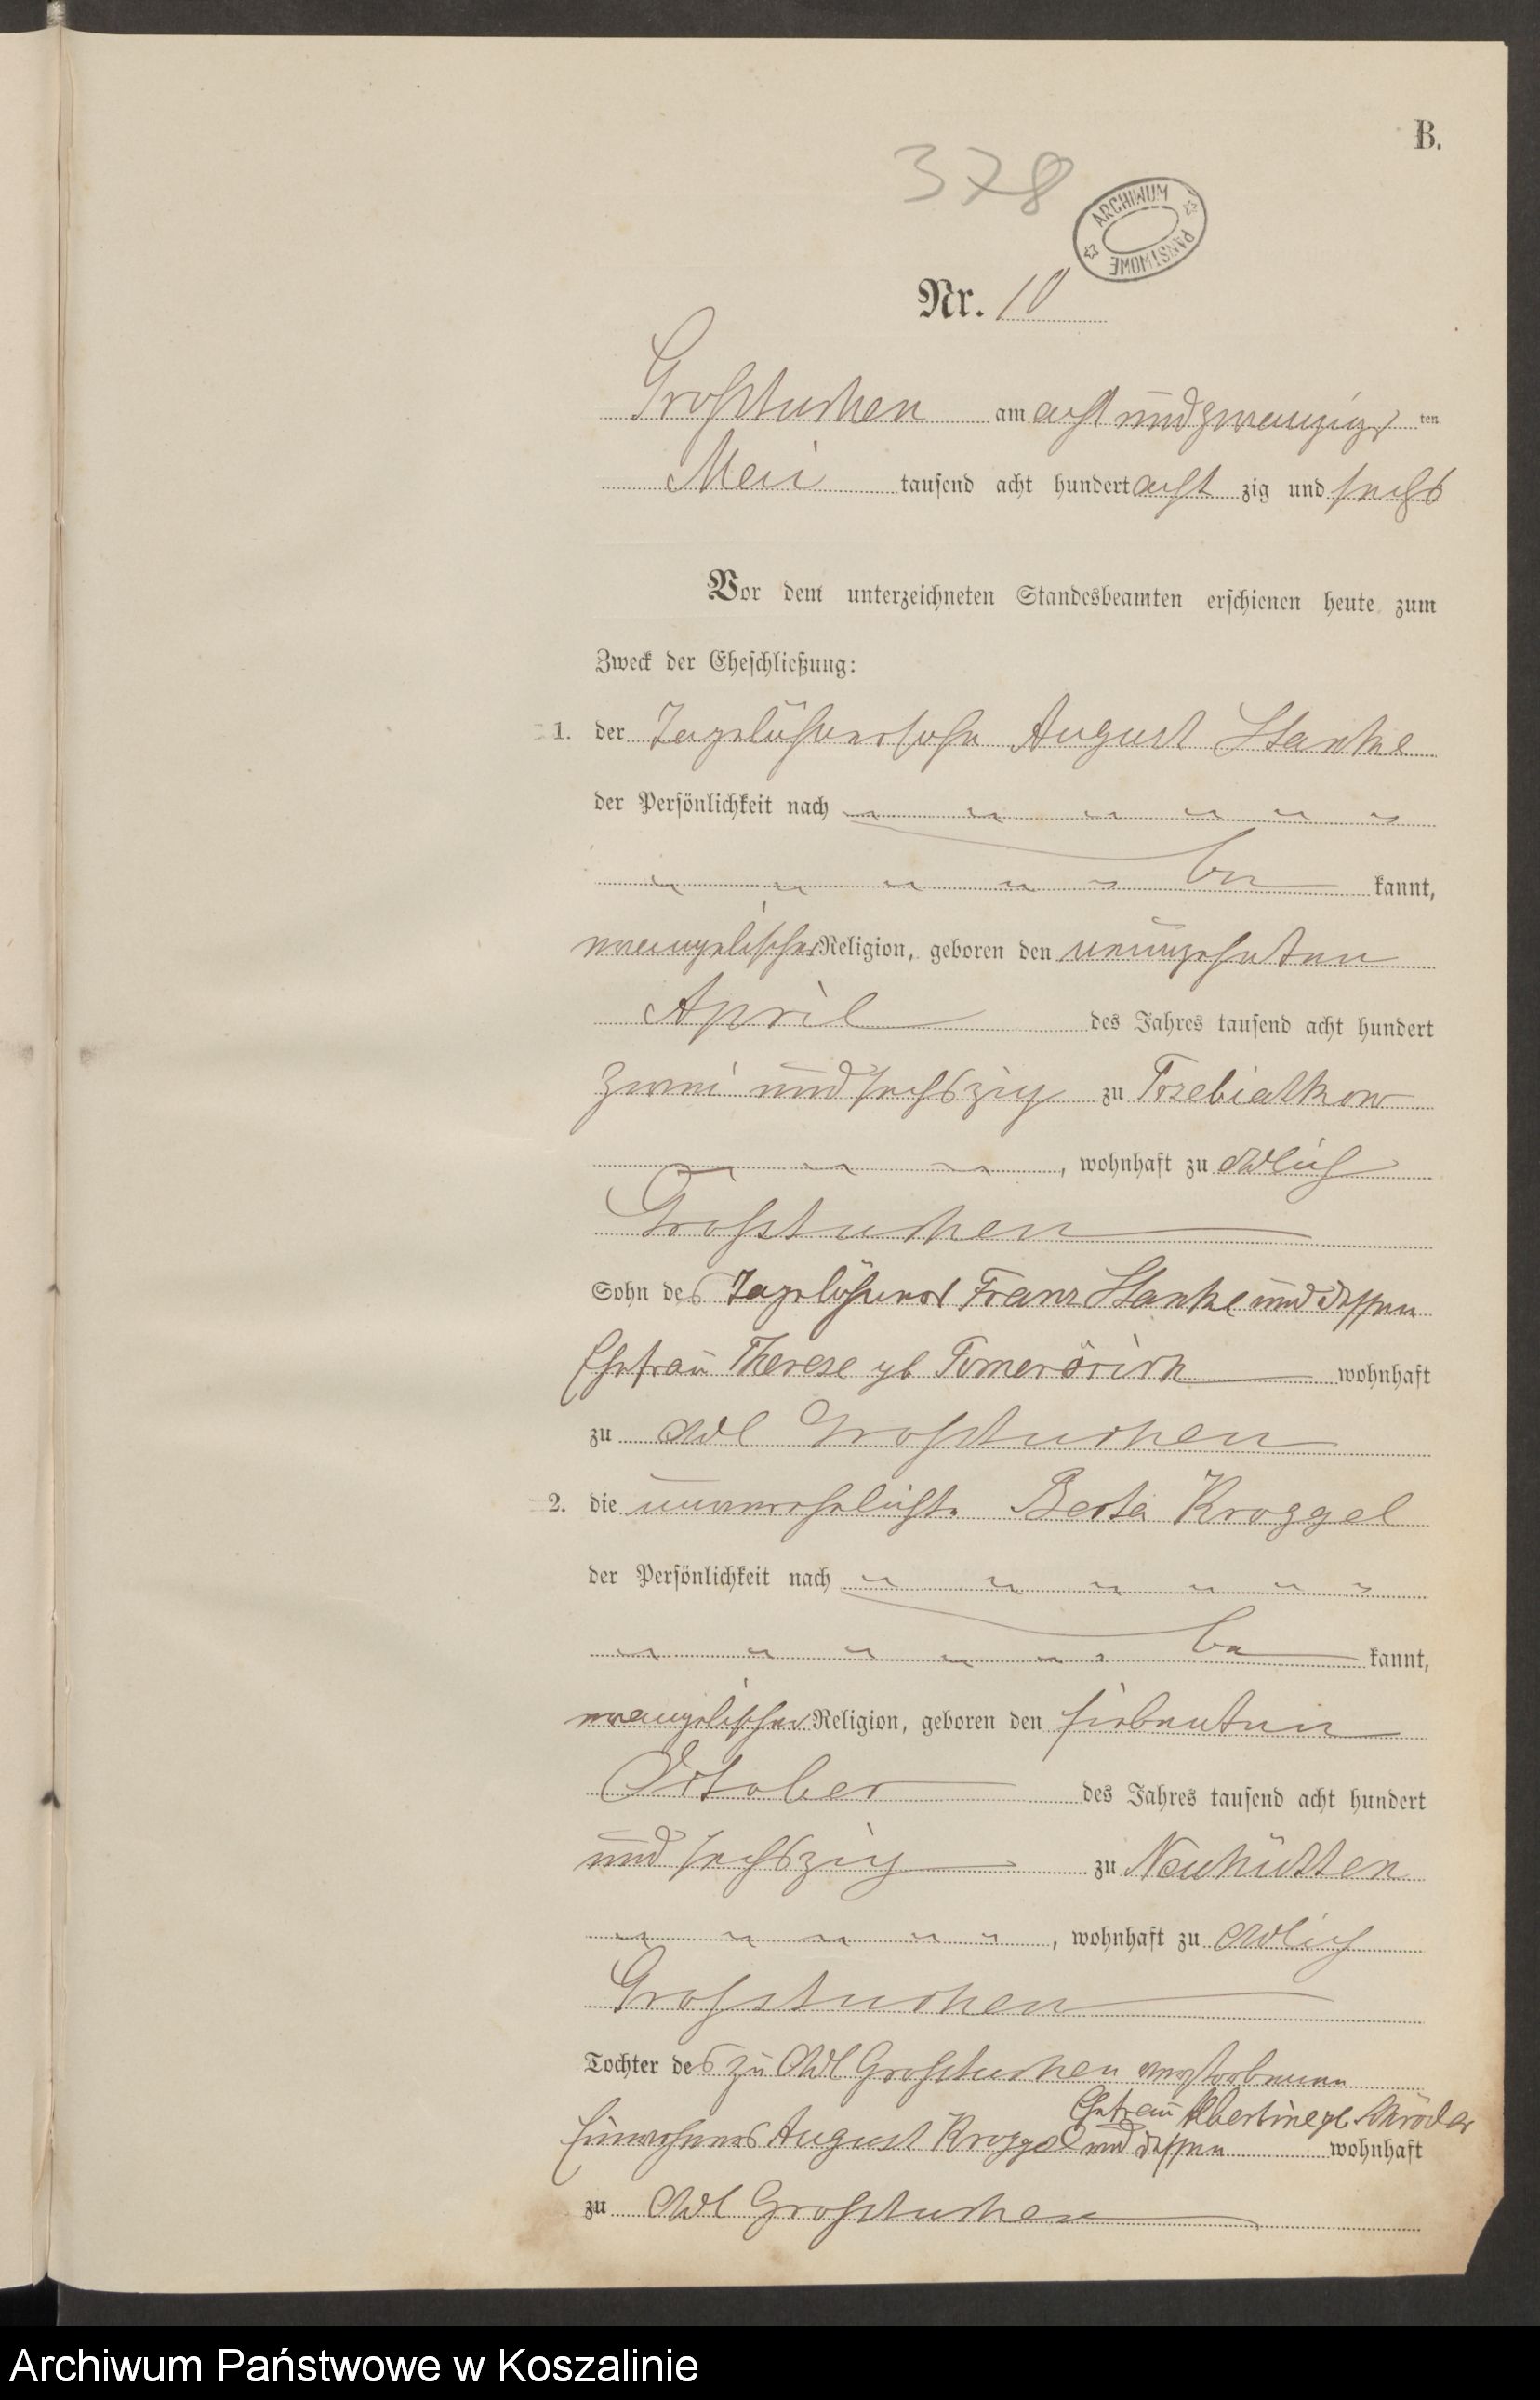 B.
378
ARCHIWUM PAŃSTWOWE
Nr. 10
Großtuchen am acht und zwanzigs ten
Mai tausend acht hundert acht zig und sechs
Vor dem unterzeichneten Standesbeamten erschienen heute zum
Zweck der Eheschließung:
1. der Tagelöhnersohn August Stanke
der Persönlichkeit nach
be kannt,
evangelischer Religion, geboren den neunzehnten
April des Jahres tausend acht hundert
zwei und sechszig zu Trzebiatkow
, wohnhaft zu Adlich
Großtuchen
Sohn des Tagelöhners Franz Stanke und dessen
Ehefrau Therese gb wohnhaft
zu Adl Großtuchen
2. die unverehelichte Berta Kroggel
der Persönlichkeit nach
be kannt,
evangelischer Religion, geboren den siebenten
October des Jahres tausend acht hundert
und sechszig zu Neuhütten
, wohnhaft zu Adlich
Großtuchen
Tochter des zu Adl Großtuchen verstorbenen
Ehefrau Albertine gb Schröder
Einwohners August Kroggel und dessen wohnhaft
zu Adl Großtuchen
Archiwum Państwowe w Koszalinie